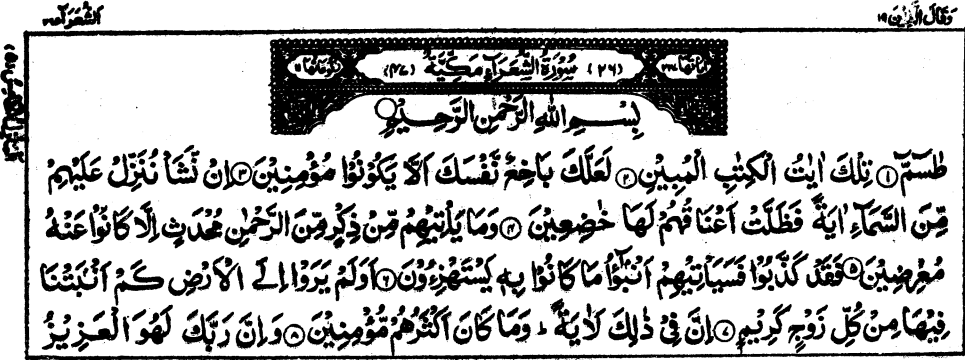 وَقَالَ الَّذِيْنَ ١٩
الشُّعَرَآء ٢٦
اٰيَاتُهَا ٢٢٧ (٢٦) سُوْرَةُ الشُّعَرَآءِ مَكِّيَّةٌ (٤٧) رُكُوْعَاتُهَا ١١
بِسْمِ اللهِ الرَّحْمٰنِ الرَّحِيْمِ
طٰسٓمّٓ ۝١ تِلْكَ اٰيٰتُ الْكِتٰبِ الْمُبِيْنِ ۝٢ لَعَلَّكَ بَاخِعٌ نَّفْسَكَ اَلَّا يَكُوْنُوْا مُؤْمِنِيْنَ ۝٣ اِنْ نَّشَاْ نُنَزِّلْ عَلَيْهِمْ
مِّنَ السَّمَآءِ اٰيَةً فَظَلَّتْ اَعْنَاقُهُمْ لَهَا خٰضِعِيْنَ ۝٤ وَمَا يَاْتِيْهِمْ مِّنْ ذِكْرٍ مِّنَ الرَّحْمٰنِ مُحْدَثٍ اِلَّا كَانُوْا عَنْهُ
مُعْرِضِيْنَ ۝٥ فَقَدْ كَذَّبُوْا فَسَيَاْتِيْهِمْ اَنْۢبٰٓؤُا مَا كَانُوْا بِهٖ يَسْتَهْزِءُوْنَ ۝٦ اَوَلَمْ يَرَوْا اِلَى الْاَرْضِ كَمْ اَنْۢبَتْنَا
فِيْهَا مِنْ كُلِّ زَوْجٍ كَرِيْمٍ ۝٧ اِنَّ فِيْ ذٰلِكَ لَاٰيَةً ؕ وَمَا كَانَ اَكْثَرُهُمْ مُّؤْمِنِيْنَ ۝٨ وَاِنَّ رَبَّكَ لَهُوَ الْعَزِيْزُ